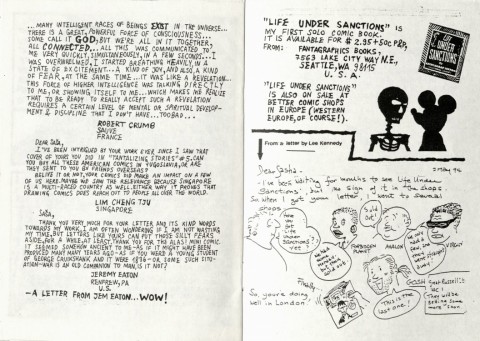 ... MANY INTELLIGENT RACES OF BEINGS EXIST IN THE UNIVERSE...
THERE IS A GREAT, POWERFUL FORCE OF CONSCIOUSNESS...
SOME CALL IT GOD, BUT WE'RE ALL IN IT TOGETHER,
ALL CONNECTED... ALL THIS WAS COMMUNICATED TO
ME VERY QUICKLY, SIMULTANEOUSLY, IN A FEW SECONDS... I
WAS OVERWHELMED, I STARTED BREATHING HEAVILY, IN A
STATE OF EXCITEMENT... A KIND OF JOY, AND ALSO A KIND
OF FEAR, AT THE SAME TIME... IT WAS LIKE A REVELATION...
THIS FORCE OF HIGHER INTELLIGENCE WAS TALKING DIRECTLY
TO ME, OR SHOWING ITSELF TO ME... WHICH MAKES ME REALIZE
THAT TO BE READY TO REALLY ACCEPT SUCH A REVELATION
REQUIRES A CERTAIN LEVEL OF MENTAL OR SPIRITUAL DEVELOP-
MENT & DISCIPLINE THAT I DON'T HAVE... TOO BAD...
ROBERT CRUMB
SAUVE
FRANCE
DEAR SAŠA,
I'VE BEEN INTRIGUED BY YOUR WORK EVER SINCE I SAW THAT
COVER OF YOURS YOU DID IN "TANTALIZING STORIES" #5. CAN
YOU BUY ALL THESE AMERICAN COMICS IN YUGOSLAVIA, OR ARE
THEY SENT TO YOU BY FRIENDS OVERSEAS?
BELIEVE IT OR NOT, YOUR COMICS DID MAKE AN IMPACT ON A FEW
OF US HERE. MAYBE WE SAW THE RELEVANCE BECAUSE SINGAPORE
IS A MULTI-RACED COUNTRY AS WELL. EITHER WAY IT PROVES THAT
DRAWING COMICS DOES REACH OUT TO PEOPLE ALL OVER THE WORLD.
LIM CHENG TJU
SINGAPORE
SAŠA,
THANK YOU VERY MUCH FOR YOUR LETTER AND ITS KIND WORDS
TOWARDS MY WORK. I AM OFTEN WONDERING IF I AM NOT WASTING
MY TIME, BUT LETTERS LIKE YOURS CAN PUT THOSE SILLY FEARS
ASIDE, FOR A WHILE AT LEAST. THANK YOU FOR THE ALAS! MINI COMIC.
IT SEEMED SOMEHOW ANCIENT TO ME - AS IF IT MIGHT HAVE BEEN
PRODUCED MANY MANY YEARS AGO - AS IF YOU WERE A YOUNG STUDENT
OF GEORGE CRUIKSHANK AND IT WERE 1836 - OR SOME SUCH SITU-
ATION - WAR IS AN OLD COMPANION TO MAN, IS IT NOT?
JEREMY EATON
RENFREW, PA
U.S.
— A LETTER FROM JEM EATON... WOW!
"LIFE UNDER SANCTIONS" IS
MY FIRST SOLO COMIC BOOK.
IT IS AVAILABLE FOR $ 2.95 + 50¢ P&P,
FROM: FANTAGRAPHICS BOOKS,
7563 LAKE CITY WAY N.E.,
SEATTLE, WA 98115
U. S. A.
LIFE
UNDER
SANCTIONS
"LIFE UNDER SANCTIONS"
IS ALSO ON SALE AT
BETTER COMIC SHOPS
IN EUROPE (WESTERN
EUROPE, OF COURSE!).
From a letter by Lee Kennedy
Dear Sasha -
I've been waiting for months to see Life Under
Sanctions, but no sign of it in the shops.
So when I got your letter, I went to several
shops.
FORBIDDEN PLANET
AVALON
Finally,
GOSH
This is the last one!
So you're doing well in London!